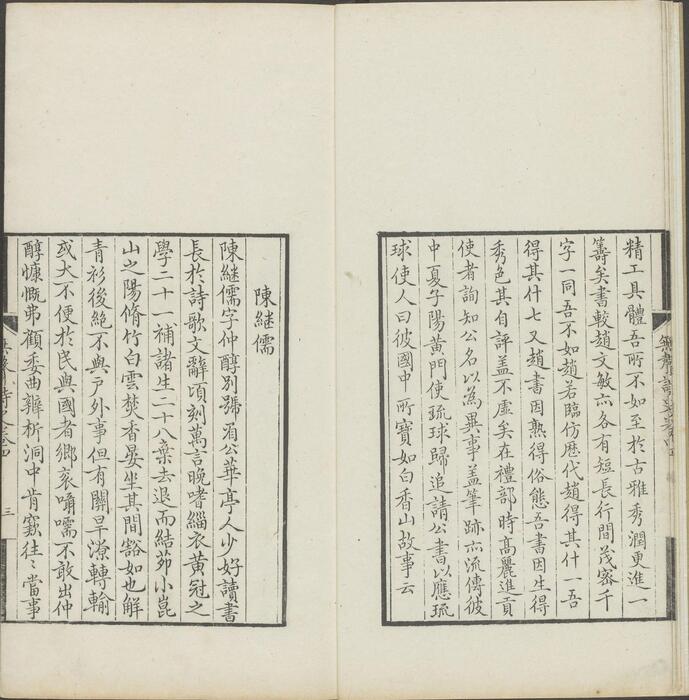 精工具體吾所不如至於古雅秀潤更進一
籌矣書較趙文敏亦各有短長行間茂密千
字一同吾不如趙若臨仿歷代趙得其什一吾
得其什七又趙書因熟得俗態吾書因生得
秀色其自評盖不虛矣在禮部時高麗進貢
使者詢知公名以為異事盖筆跡亦流傳彼
中夏子陽黄門使琉球歸追請公書以應琉
球使人曰彼國中所寶如白香山故事云
陳継儒
陳継儒字仲醇別號眉公華亭人少好讀書
長於詩歌文辭頃刻萬言晚嗜緇衣黄冠之
學二十一補諸生二十八棄去退而結茆小崑
山之陽脩竹白雲焚香晏坐其間豁如也解
青衫後絶不與戶外事但有關旱潦轉輸
或大不便於民與國者鄉衮囁嚅不敢出仲
醇慷慨弗顧委曲辨析洞中肯窾往〻當事
三